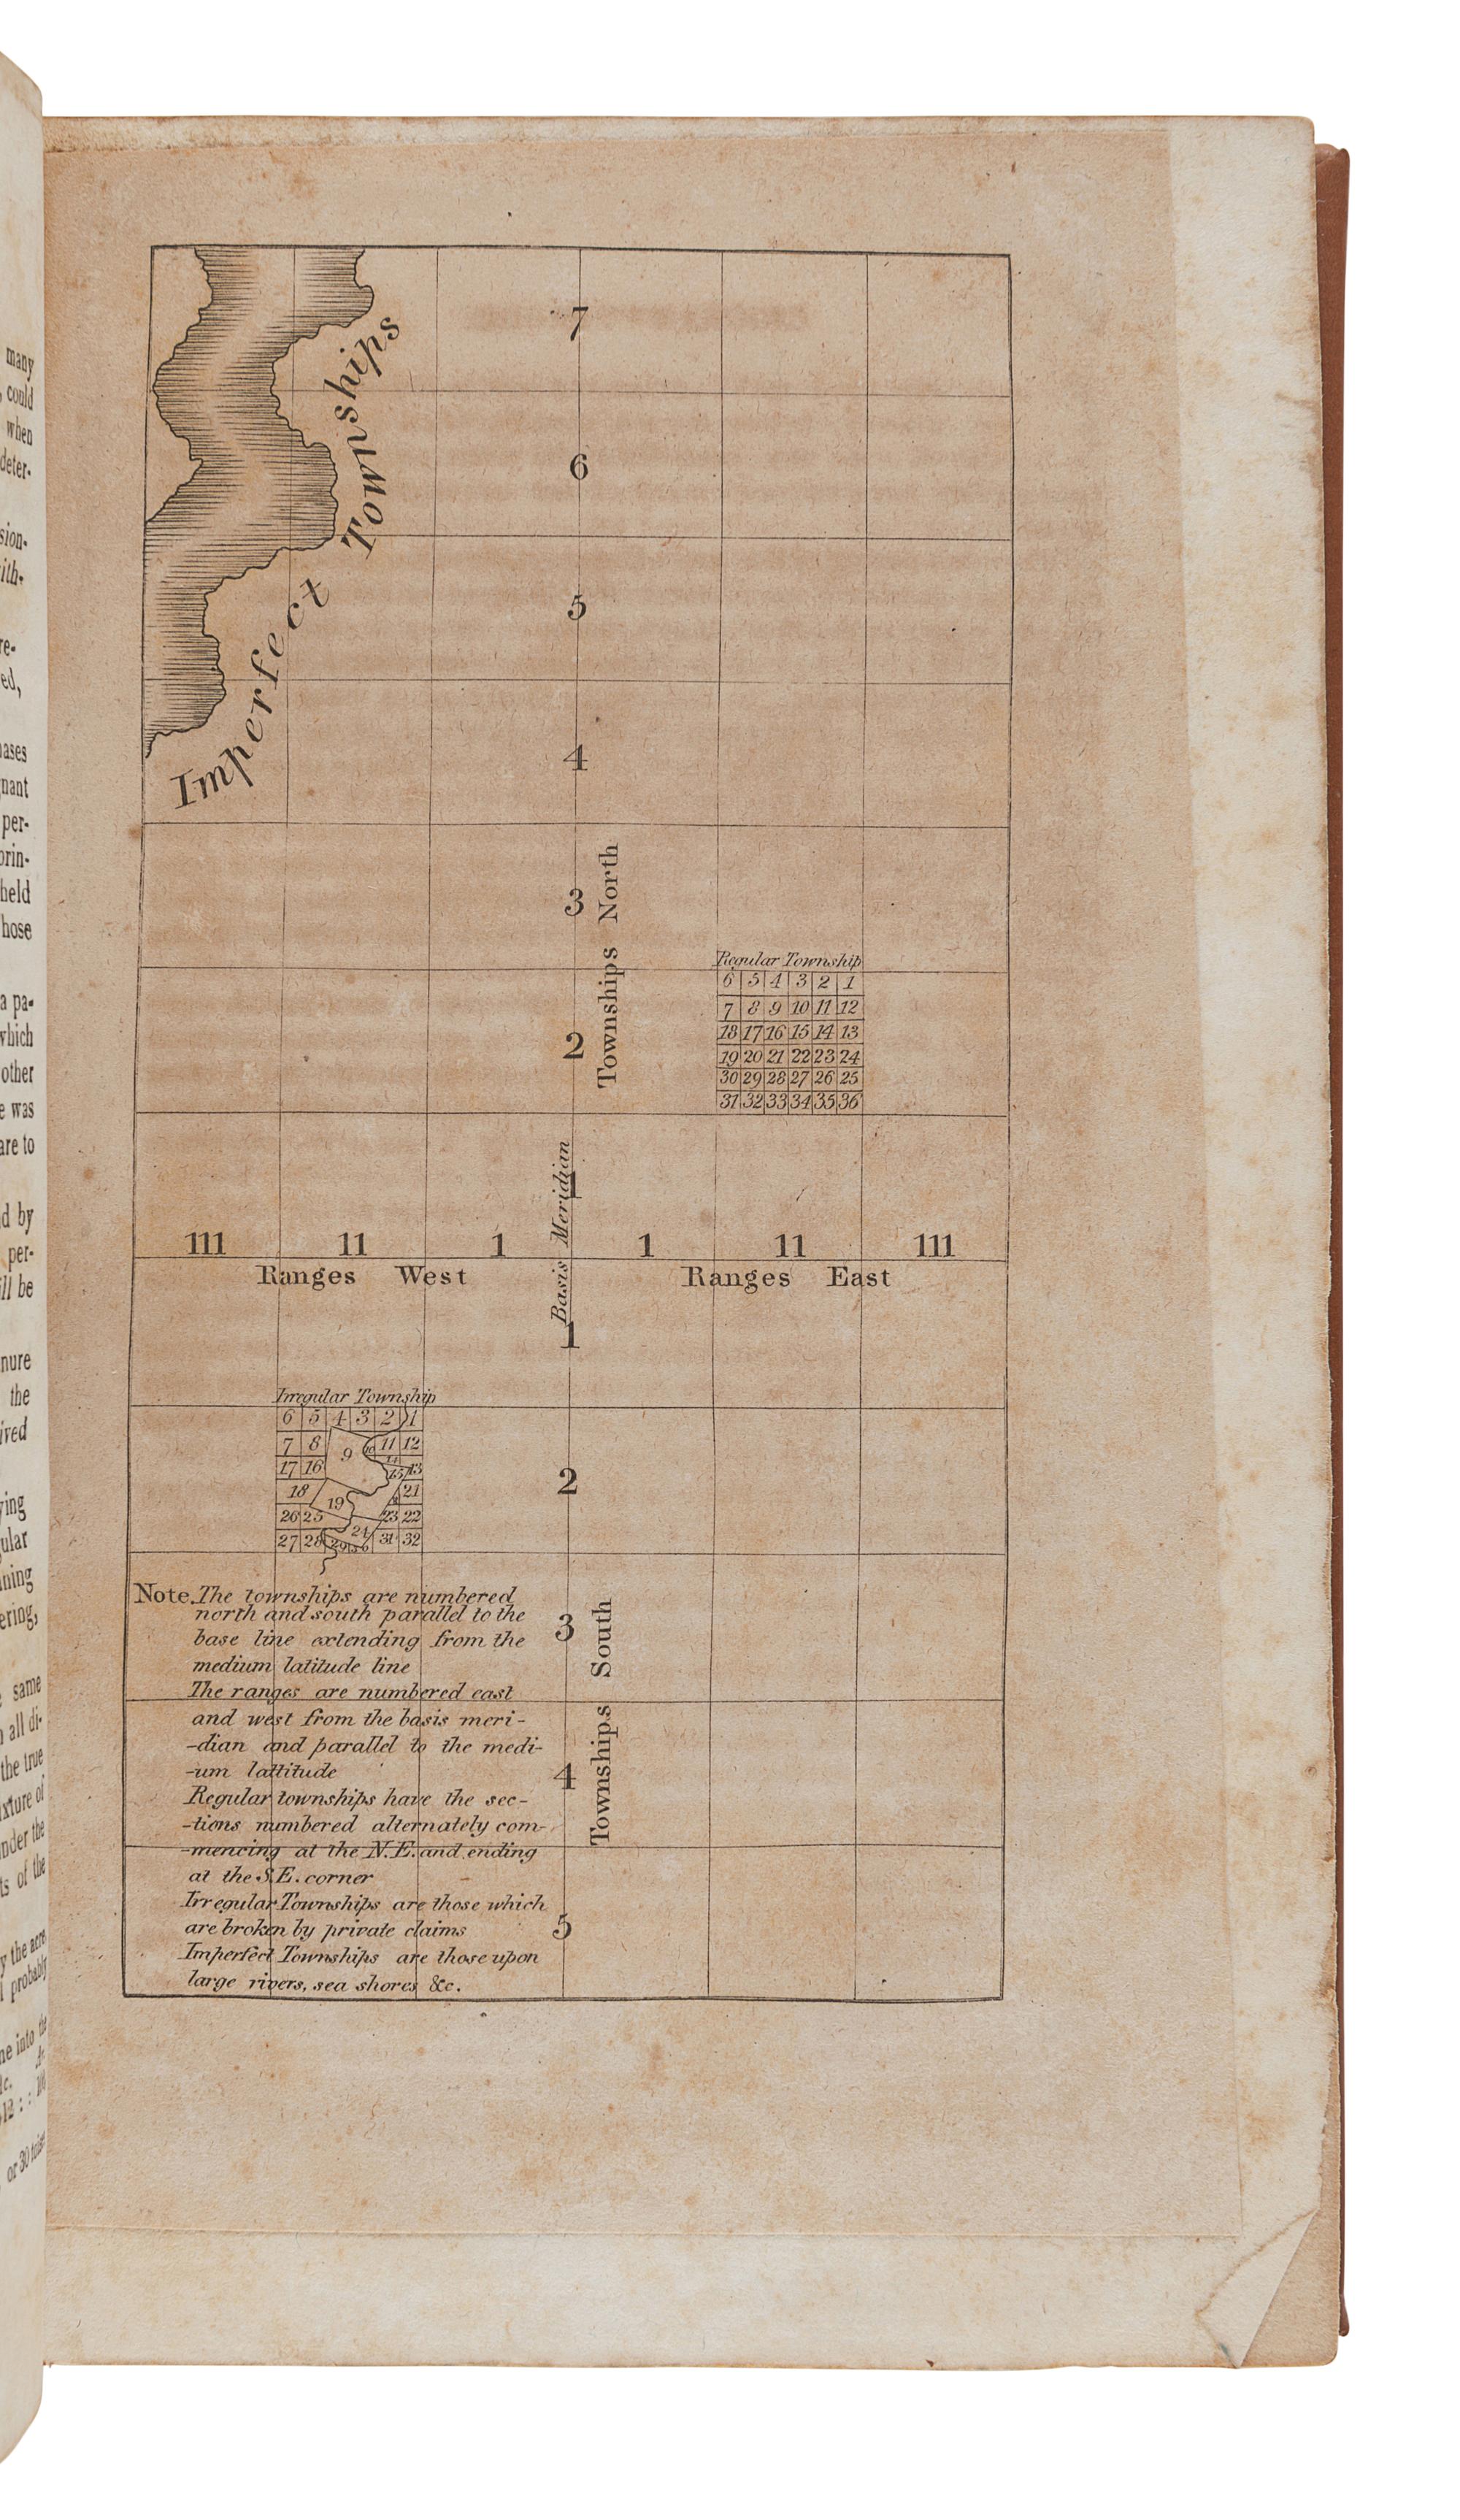 many
could
when
deter-
sion-
ith-
re-
ed,
nant
per-
prin-
held
hose
a pa-
which
other
e was
are to
d by
per-
ill be
nure
the
ived
ying
ular
ning
ering,
same
all di-
the true
ixture of
nder the
ts of the
y the acre
probably
ne into the
&c.
12 : : 10
or 30 toises
7
6
5
4
3
2
1
Imperfect Townships
Townships North
Regular Township
6 5 4 3 2 1
7 8 9 10 11 12
18 17 16 15 14 13
19 20 21 22 23 24
30 29 28 27 26 25
31 32 33 34 35 36
Basis Meridian
111 11 1 1 11 111
Ranges West Ranges East
1
Irregular Township
6 5 4 3 2 1
7 8 9 10 11 12
17 16 14 15 13
18 21
19
26 25 23 22
24
27 28 29 30 31 32
2
3
4
5
Townships South
Note. The townships are numbered
north and south parallel to the
base line extending from the
medium latitude line
The ranges are numbered east
and west from the basis meri-
-dian and parallel to the medi-
-um lattitude
Regular townships have the sec-
-tions numbered alternately com-
-mencing at the N.E. and ending
at the S.E. corner
Irregular Townships are those which
are broken by private claims
Imperfect Townships are those upon
large rivers, sea shores &c.